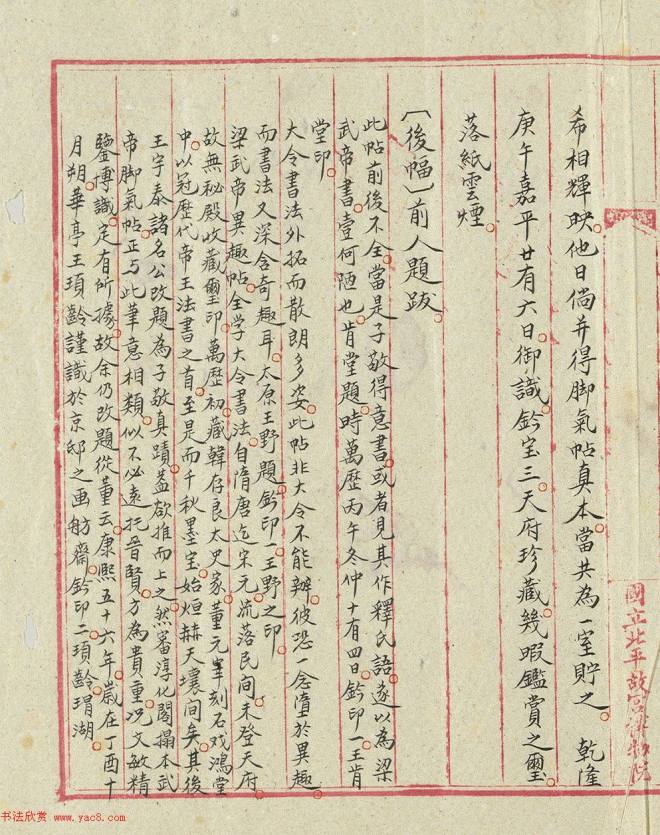 希相輝映。他日倘并得脚氣帖真本。當共為一室貯之。 乾隆
庚午嘉平廿有六日。御識。鈐宝三。天府珍藏。幾暇鑑賞之璽。
落紙雲煙。
〔後幅〕前人題跋。
此帖前後不全。當是子敬得意書。或者見其作釋氏語。遂以為梁
武帝書。壹何陋也。肯堂題。時萬歷丙午冬仲十有四日。鈐印一。王肯
堂印。
大令書法外拓而散朗多姿。此帖非大令不能辦。彼恐一念墮於異趣
而書法又深含奇趣耳。太原王野題。鈐印一。王野之印。
梁武帝異趣帖。全学大令書法。自隋唐迄宋元。流落民間。未登天府。
故無秘殿收藏璽印。萬歷初。藏韓存良太史家。董元宰刻石戏鴻堂
中。以冠歷代帝王法書之首。至是而千秋墨宝。始烜赫天壤間矣。其後
王宇泰諸名公改題為子敬真蹟。蓋欲推而上之。然審淳化閣搨本武
帝脚氣帖。正与此筆意相類。似不必遠托晉賢。方為貴重。况文敏精
鑒博識。定有所據。故余仍改題從董云。康熙五十六年。歲在丁酉十
月朔。華亭王頊齡謹識於京邸之画舫齋。鈐印二。頊齡。瑁湖。
國立北平故宮博物院
书法欣赏 www.yac8.com